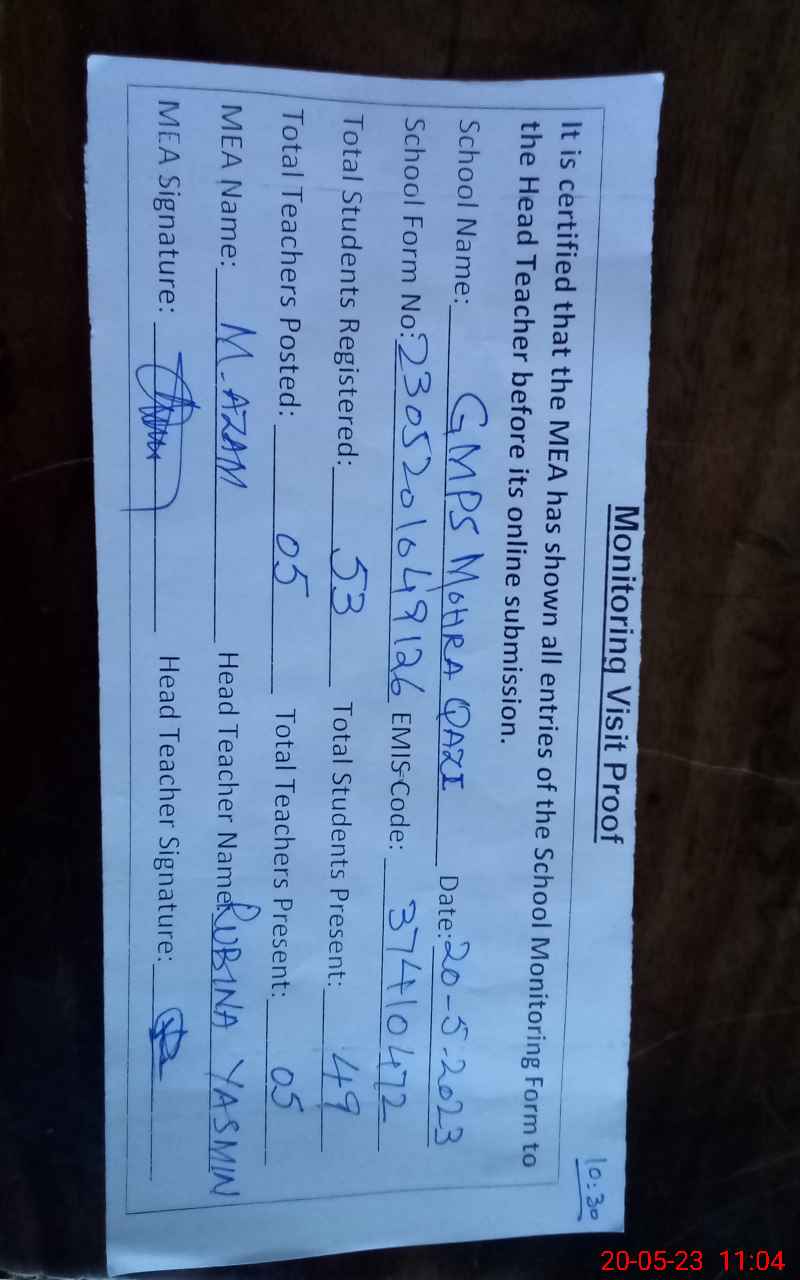 Monitoring Visit Proof
10:30
It is certified that the MEA has shown all entries of the School Monitoring Form to
the Head Teacher before its online submission.
School Name: GMPS MOHRA QAZI Date: 20-5-2023
School Form No: 2305201649126 EMIS Code: 37410472
Total Students Registered: 53 Total Students Present: 49
Total Teachers Posted: 05 Total Teachers Present: 05
MEA Name: M. AZAM Head Teacher Name: RUBINA YASMIN
MEA Signature: Head Teacher Signature:
20-05-23 11:04